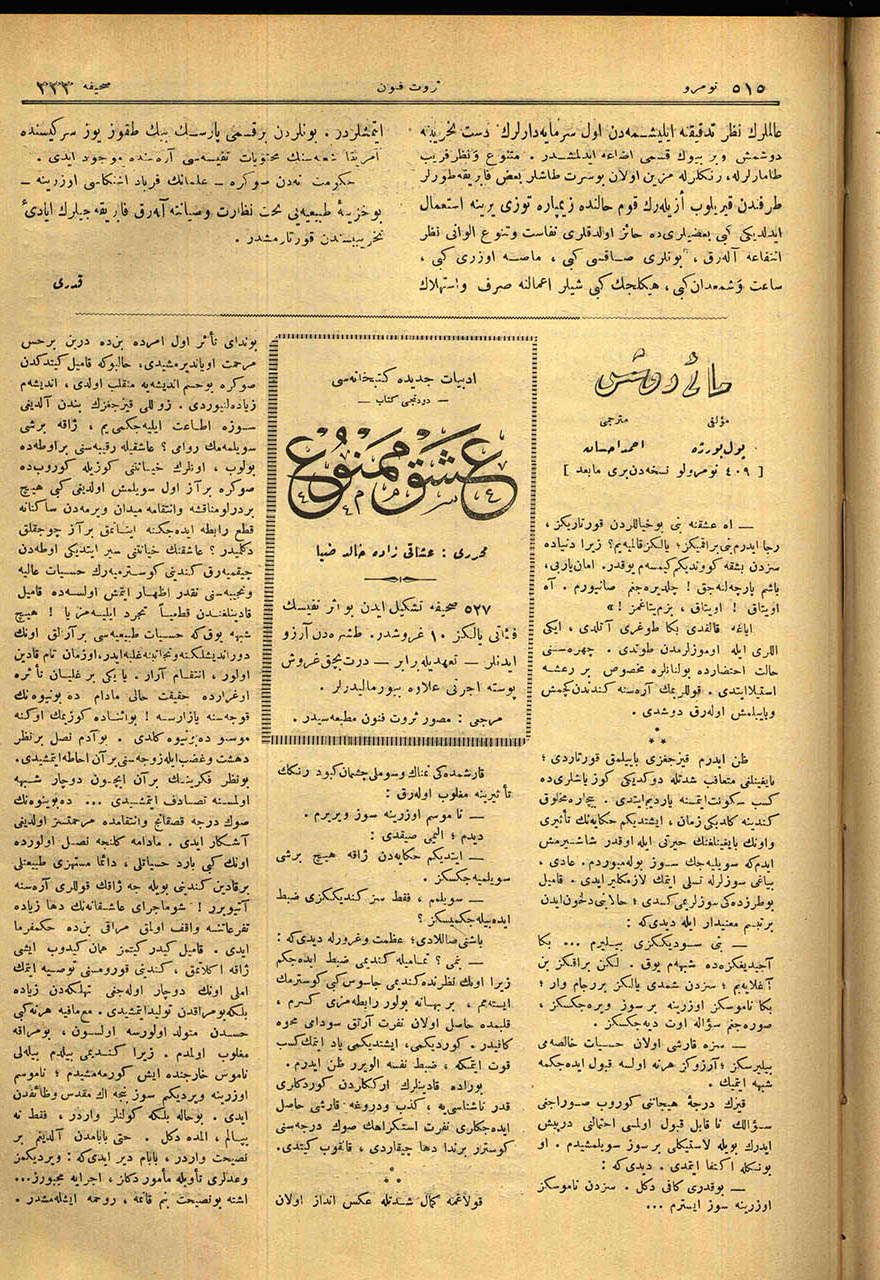 نومرو ٥١٥
ثروت فنون
صحیفه ٣٢٣
عالملرك نظر تدقیقنه ایلیشمه‌دن اول سرمایه‌دارلرك دست تخریبنه
دوشمش وبر بیوك قسمی اضاعه ایدلمشدر . متنوع ونظرفریب
طامارلرله، رنكلرله مزین اولان بوسرت طاشلر بعض فابریقه‌طورلر
طرفندن قیریلوب أزیله‌رك قوم حالنده زیمپاره توزی یرینه استعمال
ایدلدیكی كبی بعضیلری‌ده حائز اولدقلری نفاست وتنوع الوانی نظر
انتفاعه آله‌رق ، بونلری صاقسی كبی ، ماصه اوزری كبی ،
ساعت وشمعدان‌كبی ، هیكلجك كبی شیلر اعمالنه صرف واستهلاك
ایتمشلردر . بونلردن برقسمی پارسك بیك طقوز یوز سركیسنده
آمریقا شعبه‌سنك محتویات نفیسه‌سی آره‌سنده موجود ایدی .
حكومت نه‌دن سوكره ـ علمانك فریاد اشتكاسی اوزرینه ـ
بوخزینهٔ طبیعیه‌یی تحت نظارت وصیانته آله‌رق فابریقه‌جیلرك ایادیٔ
تخریبندن قورتارمشدر .
قدری
مائی دوشس
مؤلفی
مترجمی
پول بورژه
احمد احسان
[ ٤٠٩ نومرولو نسخه‌دن‌بری مابعد ]
ـ اه عشقنه بنی بوخیاللردن قورتاریكز،
رجا ایدرم‌بنی براقمیكز؛ یالكز قالمیه‌یم؟ زیرا دنیاده
سزدن بشقه كووندیكم‌كیمسه‌م یوقدر. امان‌یاربی،
باشم پارچه‌لنه‌جق ! چلدیره‌جغم صانیورم . آه
اویتاق ! اویتاق ، بزم‌یتاغمز ! »
ایاغه قالقدی بكا طوغری آتلدی ، ایكی
اللری ایله اوموزلرمدن طوتدی . چهره‌سنی
حالت احتضارده بولنانلره مخصوص بر رعشه
استیلاایتدی . قوللریمك آره‌سنه كندندن‌كچمش
وبایلمش اوله‌رق دوشدی .
⁂
ظن ایدرم قیزجغزی بایلمق قورتاردی ؛
بایغینلغی متعاقب شدتله دوكدیكی كوز یاشلری‌ده
كسب سكونت‌ایتمسنه یاردیم‌ایتدی . بیچاره مخلوق
كندینه كلدیكی زمان ، ایشتدیكم حكایه‌نك تأثیری
واونك بایغینلغنك حیرتی ایله اوقدر شاشیرمش
ایدم‌كه سویلیه‌جك سوز بوله‌میوردم. عادی ،
بیاغی سوزلرله تسلی ایتمك لازمكلیر ایدی . قامیل
بوطرزده‌كی سوزلریمی‌كسدی ؛ حالابنی‌دلخون‌ایدن
برتبسم معنیدار ایله دیدی‌كه :
ـ بنی سودیككزی بیلیرم ... بكا
آجیدیغكزه‌ده شبهه‌م یوق . لكن براقكز بن
آغلایه‌یم ؛ سزدن شمدی یالكز بررجام وار ؛
بكا ناموسكز اوزرینه بر سوز ویره‌جكسكز ،
صوره‌جغم سؤاله اوت دیه‌جكسكز .
ـ سزه قارشی اولان حسیات خالصه‌می
بیلیرسكز ؛ آرزوكز هرنه اولسه قبول ایده‌جكمه
شبهه ایتمیك .
قیزك درجهٔ هیجاننی كوروب صوراجغی
سؤالك نا قابل قبول اولمسی احتمالنی درپیش
ایدرك بویله لاستیكلی برسوز سویلمشیدم . او
بونكله اكتفا ایتمدی . دیدی‌كه :
ـ بوقدری كافی دكل . سزدن ناموسكز
اوزرینه سوز ایسترم ...
ادبیات جدیده كتبخانه‌سی
ـ دردنجی كتاب ـ
عشق ممنوع
محرری : عشاقی زاده خالد ضیا
٥٢٧ صحیفه تشكیل ایدن بو اثر نفیسك
فیٔاتی یالكز ١٠ غروشدر. طشره‌دن آرزو
ایدنلر ـ تعهدیله برابر ـ درت بچق غروش
پوسته اجرتی علاوه بیورمالیدرلر .
مرجعی : مصور ثروت فنون مطبعه‌سیدر .
قارشمده‌كی نمناك وسوملی چشمان كبود رنكك
تأثیرینه مغلوب اوله‌رق :
ـ ناموسم اوزرینه سوز ویریرم .
دیدم ؛ المی صیقدی :
ـ ایتدیكم حكایه‌دن ژاقه هیچ برشی
سویلمیه‌جكسكز .
ـ سویلمم ، فقط سز كندیككزی ضبط
ایده‌بیله‌جكمیسكز ؟
باشنی‌صاللادی؛ عظمت وغرورله دیدی‌كه :
ـ بنمی ؟ تمامیله كندیمی ضبط ایده‌جكم
زیرا اونك نظرنده‌كندیمی جاسوس‌كبی كوسترمك
ایسته‌مم ، بر بهانه بولور رابطه‌مزی كسرم ،
قلبمده حاصل اولان نفرت آرتق سودای محوه
كافیدر. كوردیكمی، ایشتدیكمی یاد ایتمك‌كسب
قوت ایتمكه ، ضبط نفسه الویرر ظن ایدرم .
بوراده قادینلرك ارككلردن كوردكلری
قدر ناشناسی‌یه ، كذب ودروغه قارشی حاصل
ایده‌جكلری نفرت استكراهك صوك درجه‌سنی
كوسترر برندا دها چیقاردی ، قالقوب كیتدی.
⁂
قولاغمه كمال شدتله عكس انداز اولان
بوندای تأثر اول امرده بن‌ده درین برحس
مرحمت اویاندیرمشیدی، حالبوكه قامیل كیتدكدن
صوكره بوحسم اندیشه‌یه منقلب اولدی ، اندیشه‌م
زیاده‌لنیوردی . زوللی قیزجغزك بندن آلدیغی
سوزه اطاعت ایلیه‌جكمی‌یم ، ژاقه برشی
سویلمه‌مك روامی ؟ عاشقیله رقیبه‌سنی براوطه‌ده
بولوب ، اونلرك خیانتنی كوزیله كوروب‌ده
صوكره برآز اول سویلمش اولدیغی كبی هیچ
بردرلومناقشه وانتقامه میدان ویرمه‌دن ساكنانه
قطع رابطه ایده‌جكنه اینانمق برآز چوجقلق
دكلیدر ؟ عاشقنك خیانتنی سیر ایتدیكی اوطه‌دن
چیقمیه‌رق كندینی كوسترمیه‌رك حسیات عالیه
ونجیبه‌سنی نقدر اظهار ایتمش اولسه‌ده قامیل
قادینلغندن قطعیاً تجرد ایلیه‌مز یا ! هیچ
شبهه یوق‌كه حسیات طبیعیه‌سی برآزلق اونك
دوراندیشلكنه‌ونجابتنه‌غلبه‌ایدر، اوزمان تام قادین
اولور ، انتقام آرار . یا یكی بر غلیان تأثره
اوغرارده حقیقت حالی مادام ده بونیوه‌نك
قوجه‌سنه یازارسه ! بوائناده كوزیمك اوكنه
موسیو ده‌بونیوه كلدی . بوآدم نصل برنظر
دهشت وغضب‌ایله‌زوجه‌سنی‌برآن احاطه‌ایتمشیدی.
بونظر فكرینك برآن ایچون دوچار شبهه
اولمسنه تصادف ایتمشیدی ... ده‌بونیوه‌نك
صوك درجه قصقانج وانتقامده مرحمتسز اولدیغی
آشكار ایدی . مادامه كلنجه نصل اولورده
اونك كبی بارد حسیاتلی ، دائما مستهزی طبیعتلی
برقادین كندینی بویله جه ژاقك قوللری آره‌سنه
آتیویرر ! شوماجرای عاشقانه‌نك دها زیاده
تفرعاتنه واقف اولمق مراقی بن‌ده حكمفرما
ایدی . قامیل كیدر كیتمز همان كیدوب ایشی
ژاقه اكلاتمق ، كندینی قورومسنی توصیه ایتمك
املی اونك دوچار اوله‌جغی تهلكه‌دن زیاده
بلكه‌بومراقدن تولیدایتمشیدی . مع‌مافیه هرنه‌كبی
حسدن متولد اولورسه اولسون ، بومراقه
مغلوب اولمدم . زیرا كندیمی بیلدم بیله‌لی
ناموس خارجنده ایش كورمه‌مشیدم ؛ ناموسم
اوزرینه ویردیكم سوز بنجه اك مقدس وظائفدن
ایدی . بوحاله بلكه كولنلر واردر ، فقط نه
یپالم ، المده دكل . حتی بابامدن آلدیغم بر
نصیحت واردر ، بابام دیر ایدی‌كه : ویردیكمز
وعدلری تأویله مأمور دكلز ، اجرایه مجبورز...
اشته بونصیحت بنم قانمه ، روحمه ایشله‌مشدر .